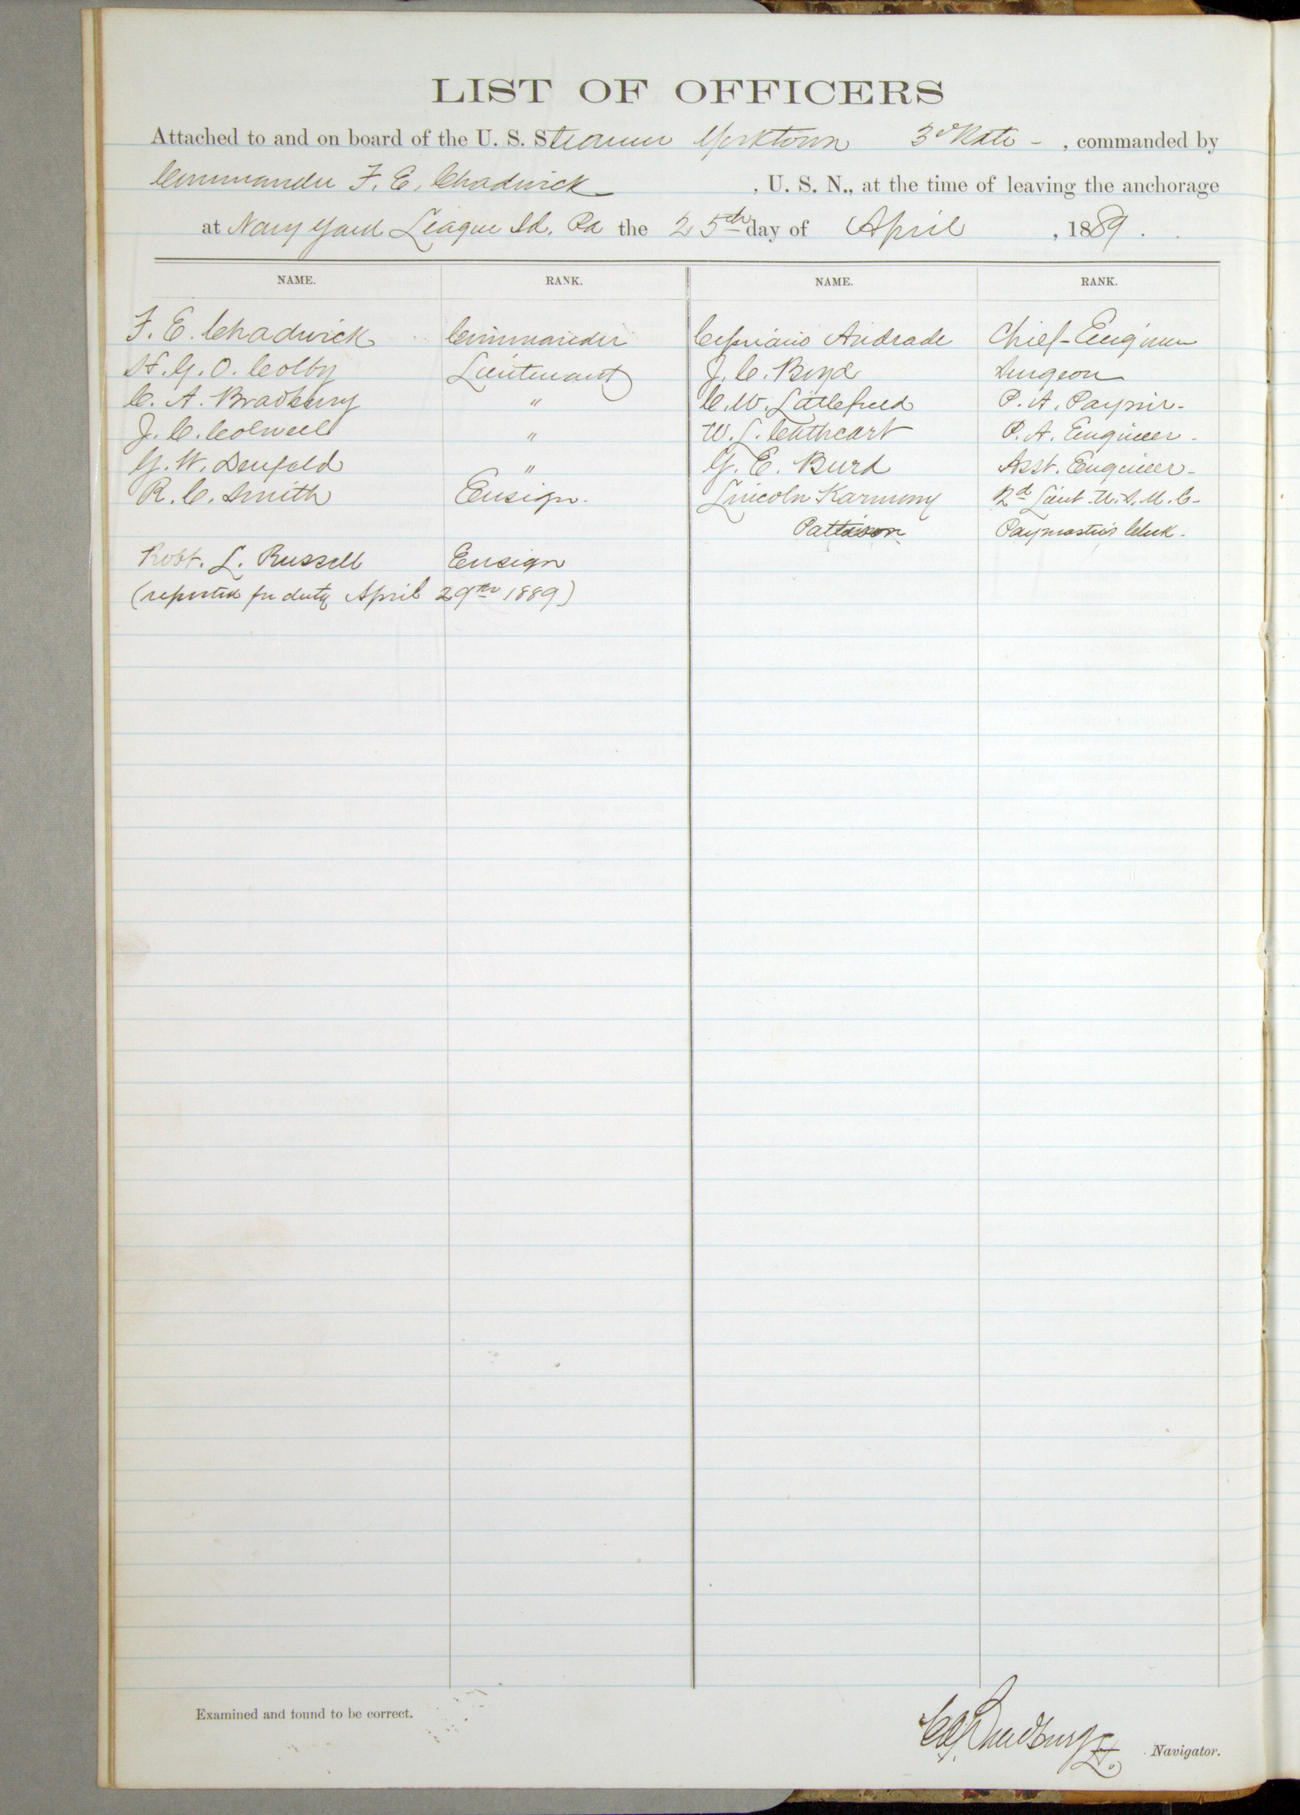 LIST OF OFFICERS
Attached to and on board of the U. S. Steamer Yorktown 3d Rate - , commanded by
Commander F. E. Chadwick , U. S. N., at the time of leaving the anchorage
at Navy Yard League Id. Pa the 25th day of April , 1889 .
NAME. RANK. NAME. RANK.
F. E. Chadwick Commander Cipriano Andrade Chief-Engineer
H. G. O. Colby Lieutenant J. C. Boyd Surgeon
C. A. Bradbury " C. W. Littlefield P. A. Paymr.
J. C. Colwell " W. L. Cathcart P. A. Engineer.
G. W. Denfeld " G. E. Burd Asst. Engineer.
R. C. Smith Ensign. Lincoln Karmany 2d Lieut. U. S. M. C.
Pattison Paymaster's Clerk.
Robt. L. Russell Ensign
(reported for duty April 29th 1889)
Examined and found to be correct.
C A Bradbury Lt. Navigator.